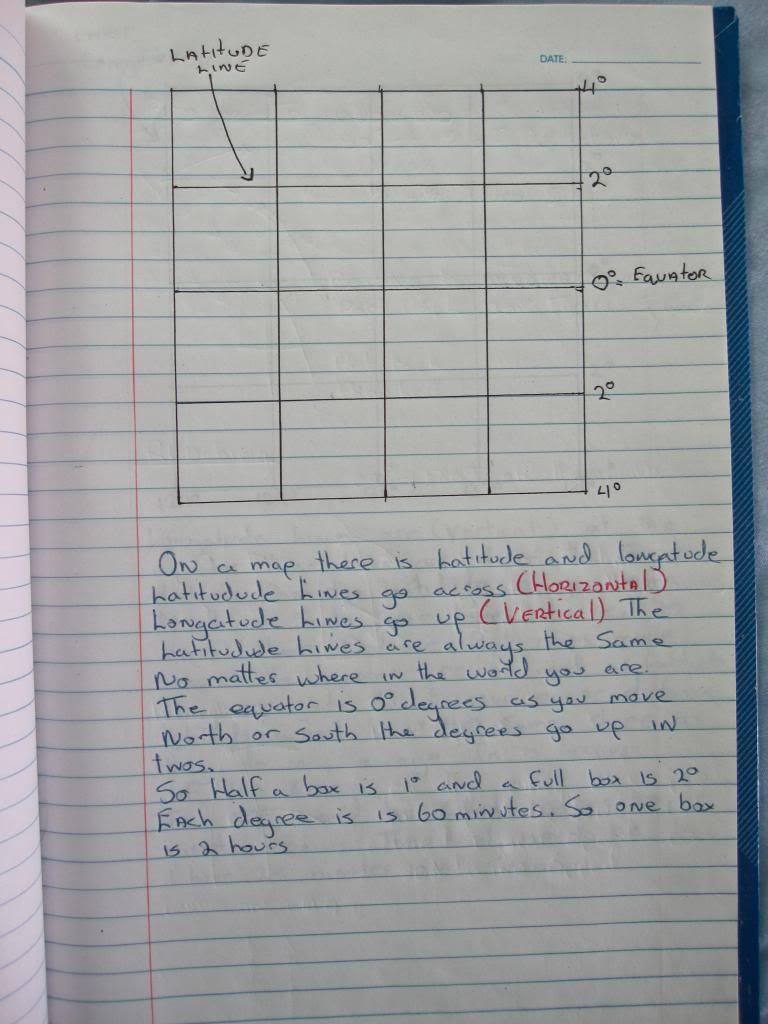 LATITUDE
LINE
DATE:
4°
2°
0°= EQUATOR
2°
4°
On a map there is Latitude and longatude
Latitudude Lines go across (HORIZONTAL)
Longatude Lines go up (VERTICAL) The
Latitudude Lines are always the Same
No matter where in the world you are.
The equator is 0° degrees as you move
North or South the degrees go up IN
twos.
So Half a box is 1° and a full box is 2°
EAch degree is is 60 minutes. So one box
is 2 hours